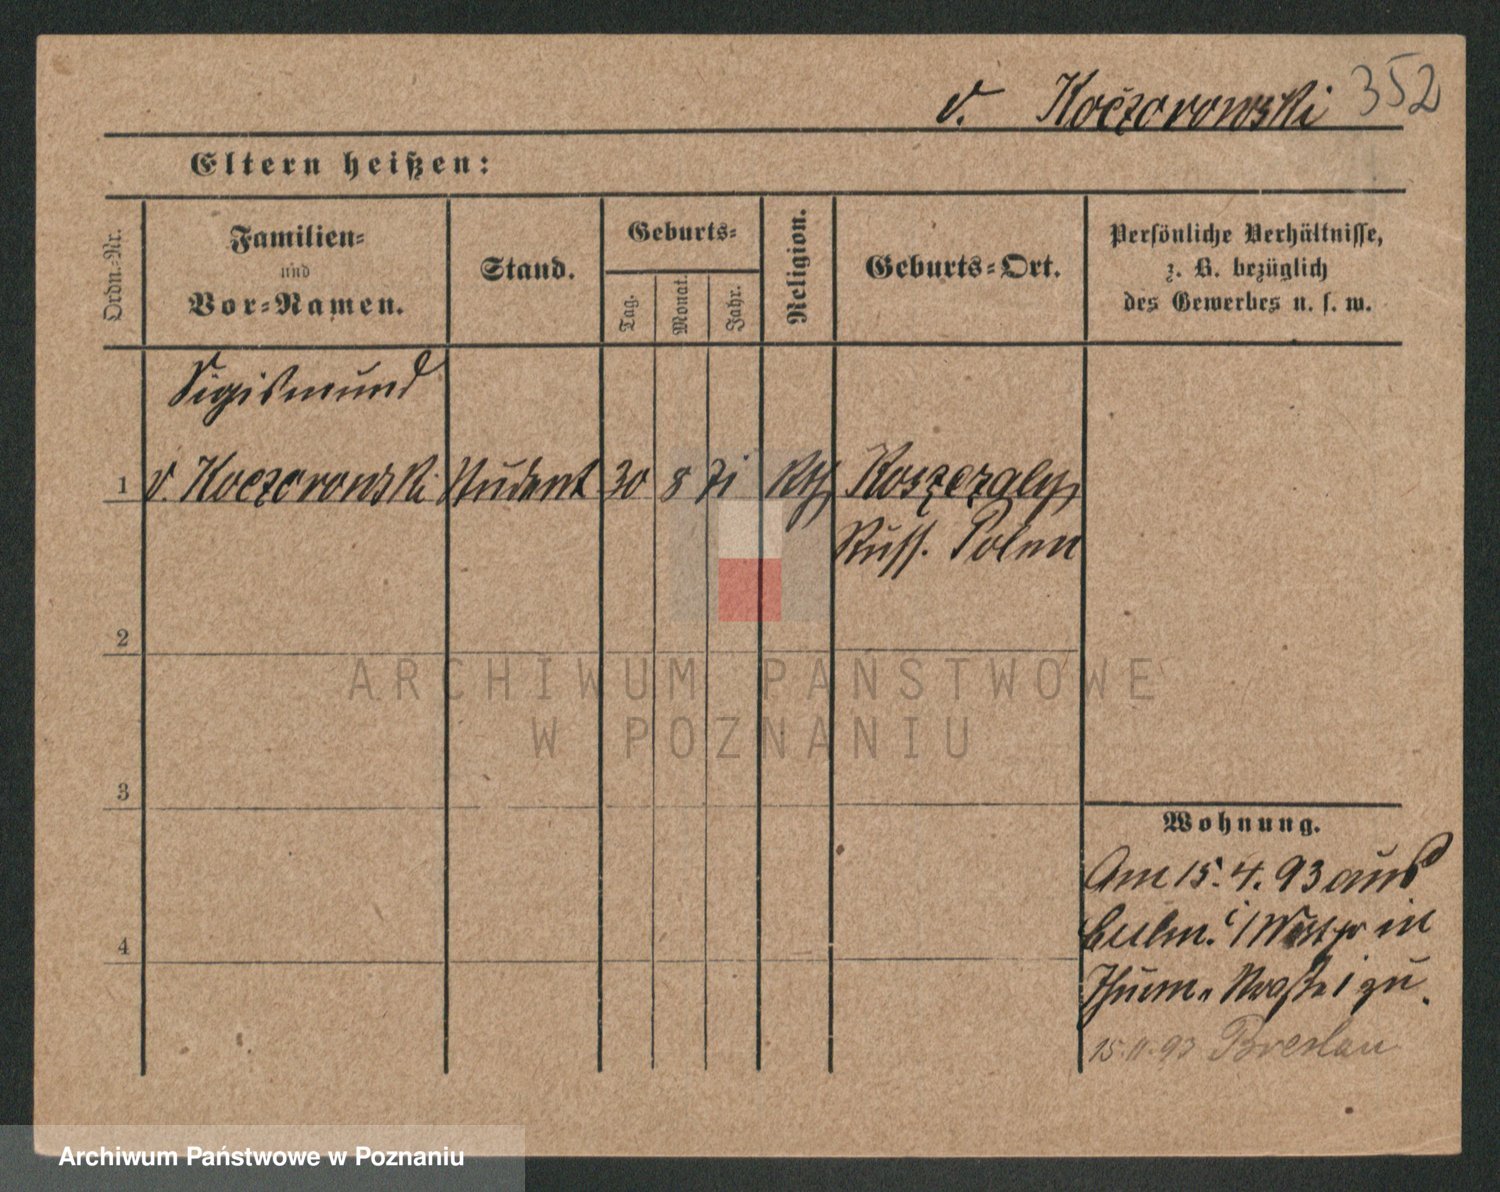 352
v. Koczorowski
Eltern heißen:
Ordn.-Nr.
Familien-
und
Vor-Namen.
Stand.
Geburts-
Tag.
Monat.
Jahr.
Religion.
Geburts-Ort.
Persönliche Verhältnisse,
z. B. bezüglich
des Gewerbes u. s. w.
Sigismund
1 v. Koczorowski Student 30 8 71 Kth Koszezaly
Russ. Polen
2
3
4
Wohnung.
Am 15. 4. 93 aus
Culm. i/Westpr in
Thurm-Straße 1 zu.
15.11.93 Breslau
ARCHIWUM PAŃSTWOWE
W POZNANIU
Archiwum Państwowe w Poznaniu